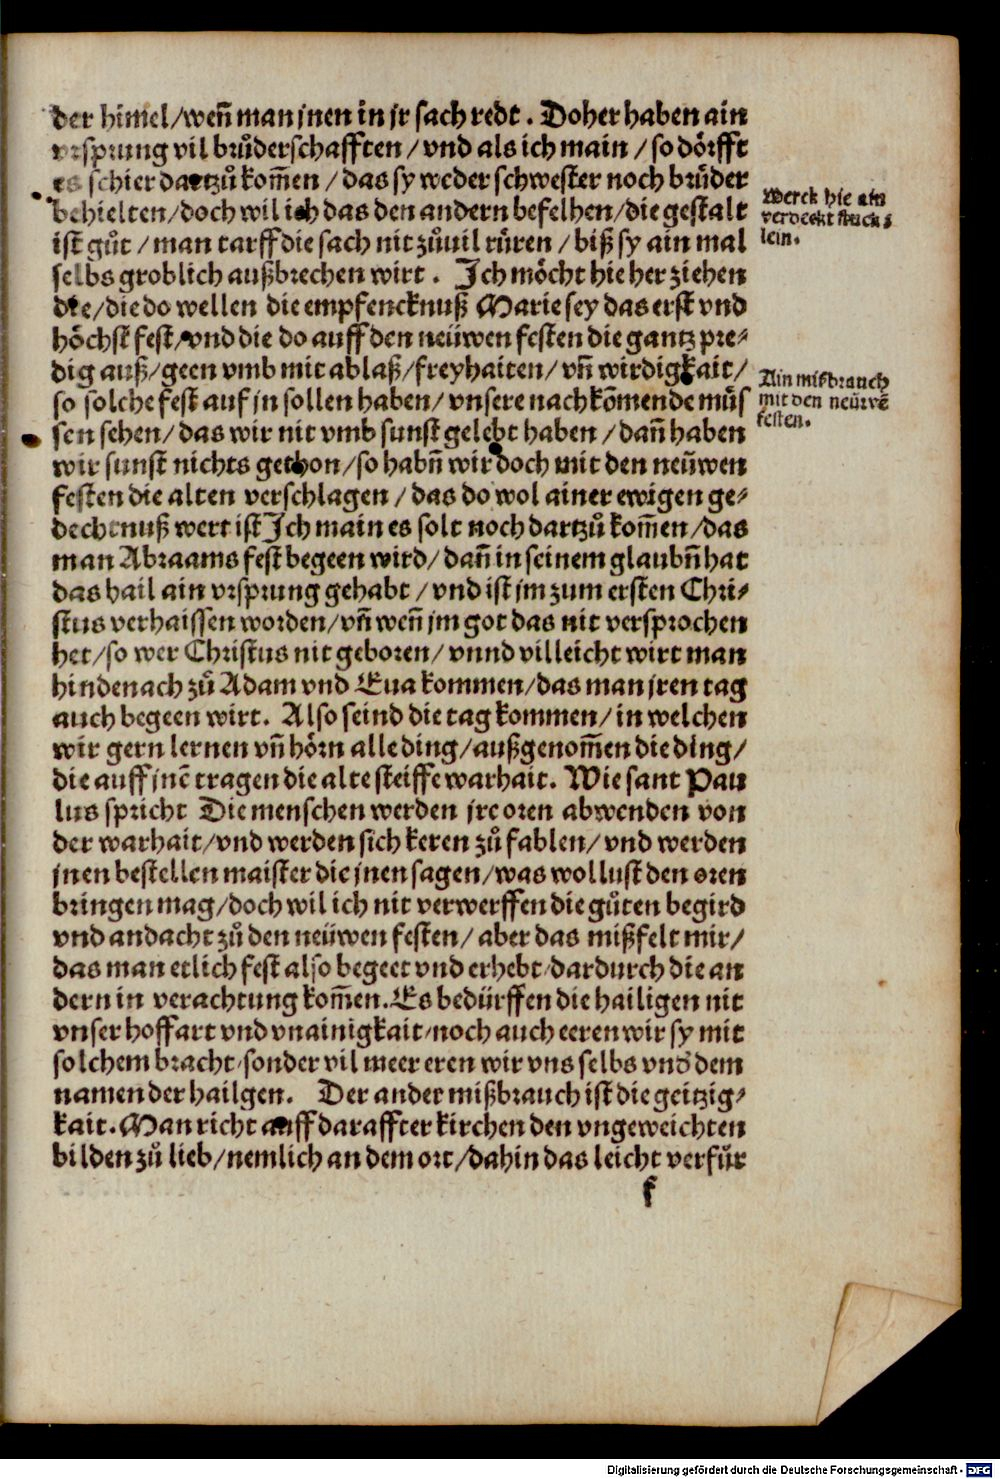 der himel/weñ man jnen in jr sach redt. Doher haben ain
vrsprung vil brůderschafften/vnd als ich main/so dörfft
es schier dartzů kom̃en/das sy weder schwester noch brůder
behielten/doch wil ich das den andern befelhen/die gestalt
ist gůt/man tarff die sach nit zůuil růren/biß sy ain mal
selbs groblich außbrechen wirt. Ich möcht hie her ziehen
die/die do wellen die empfencknuß Marie sey das erst vnd
höchst fest/vnd die do auff den neüwen festen die gantz pre-
dig auß/geen vmb mit ablaß/freyhaiten/vñ wirdigkait/
so solche fest auf jn sollen haben/vnsere nachkõmende můs
sen sehen/das wir nit vmb sunst gelebt haben/dañ haben
wir sunst nichts gethon/so habñ wir doch mit den neüwen
festen die alten verschlagen/das do wol ainer ewigen ge-
dechtnuß wert ist Ich main es solt noch dartzů kom̃en/das
man Abraams fest begeen wird/dañ in seinem glaubñ hat
das hail ain vrsprung gehabt/vnd ist jm zum ersten Chri-
stus verhaissen worden/vñ weñ jm got das nit versprochen
het/so wer Christus nit geboren/vnnd villeicht wirt man
hindenach zů Adam vnd Eua kommen/das man jren tag
auch begeen wirt. Also seind die tag kommen/in welchen
wir gern lernen vñ hörn alle ding/außgenom̃en die ding/
die auff jnẽ tragen die alte steiffe warhait. Wie sant Pau
lus spricht Die menschen werden jre oren abwenden von
der warhait/vnd werden sich keren zů fablen/vnd werden
jnen bestellen maister die jnen sagen/was wollust den oren
bringen mag/doch wil ich nit verwerffen die gůten begird
vnd andacht zů den neüwen festen/aber das mißfelt mir/
das man etlich fest also begeet vnd erhebt/dardurch die an
dern in verachtung kom̃en. Es bedürffen die hailigen nit
vnser hoffart vnd vnainigkait/noch auch eeren wir sy mit
solchem bracht/sonder vil meer eren wir vns selbs vnd dem
namen der hailgen. Der ander mißbrauch ist die geitzig-
kait. Man richt auff daraffter kirchen den vngeweichten
bilden zů lieb/nemlich an dem ort/dahin das leicht verfür
f
Merck hie ain
verdeckt stuck-
lein.
Ain misbrauch
mit den neüwẽ
festen.
Digitalisierung gefördert durch die Deutsche Forschungsgemeinschaft - DFG